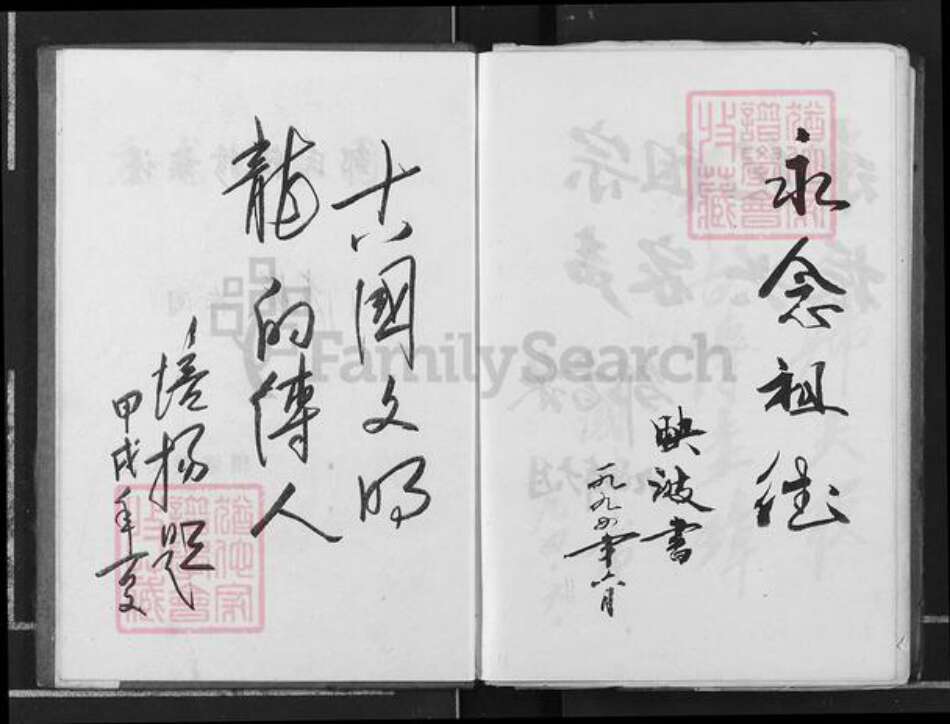 永念祖德
映波書
一九九四年六月
十八國文明
龍的傳人
培揚題
甲戌年夏
FamilySearch